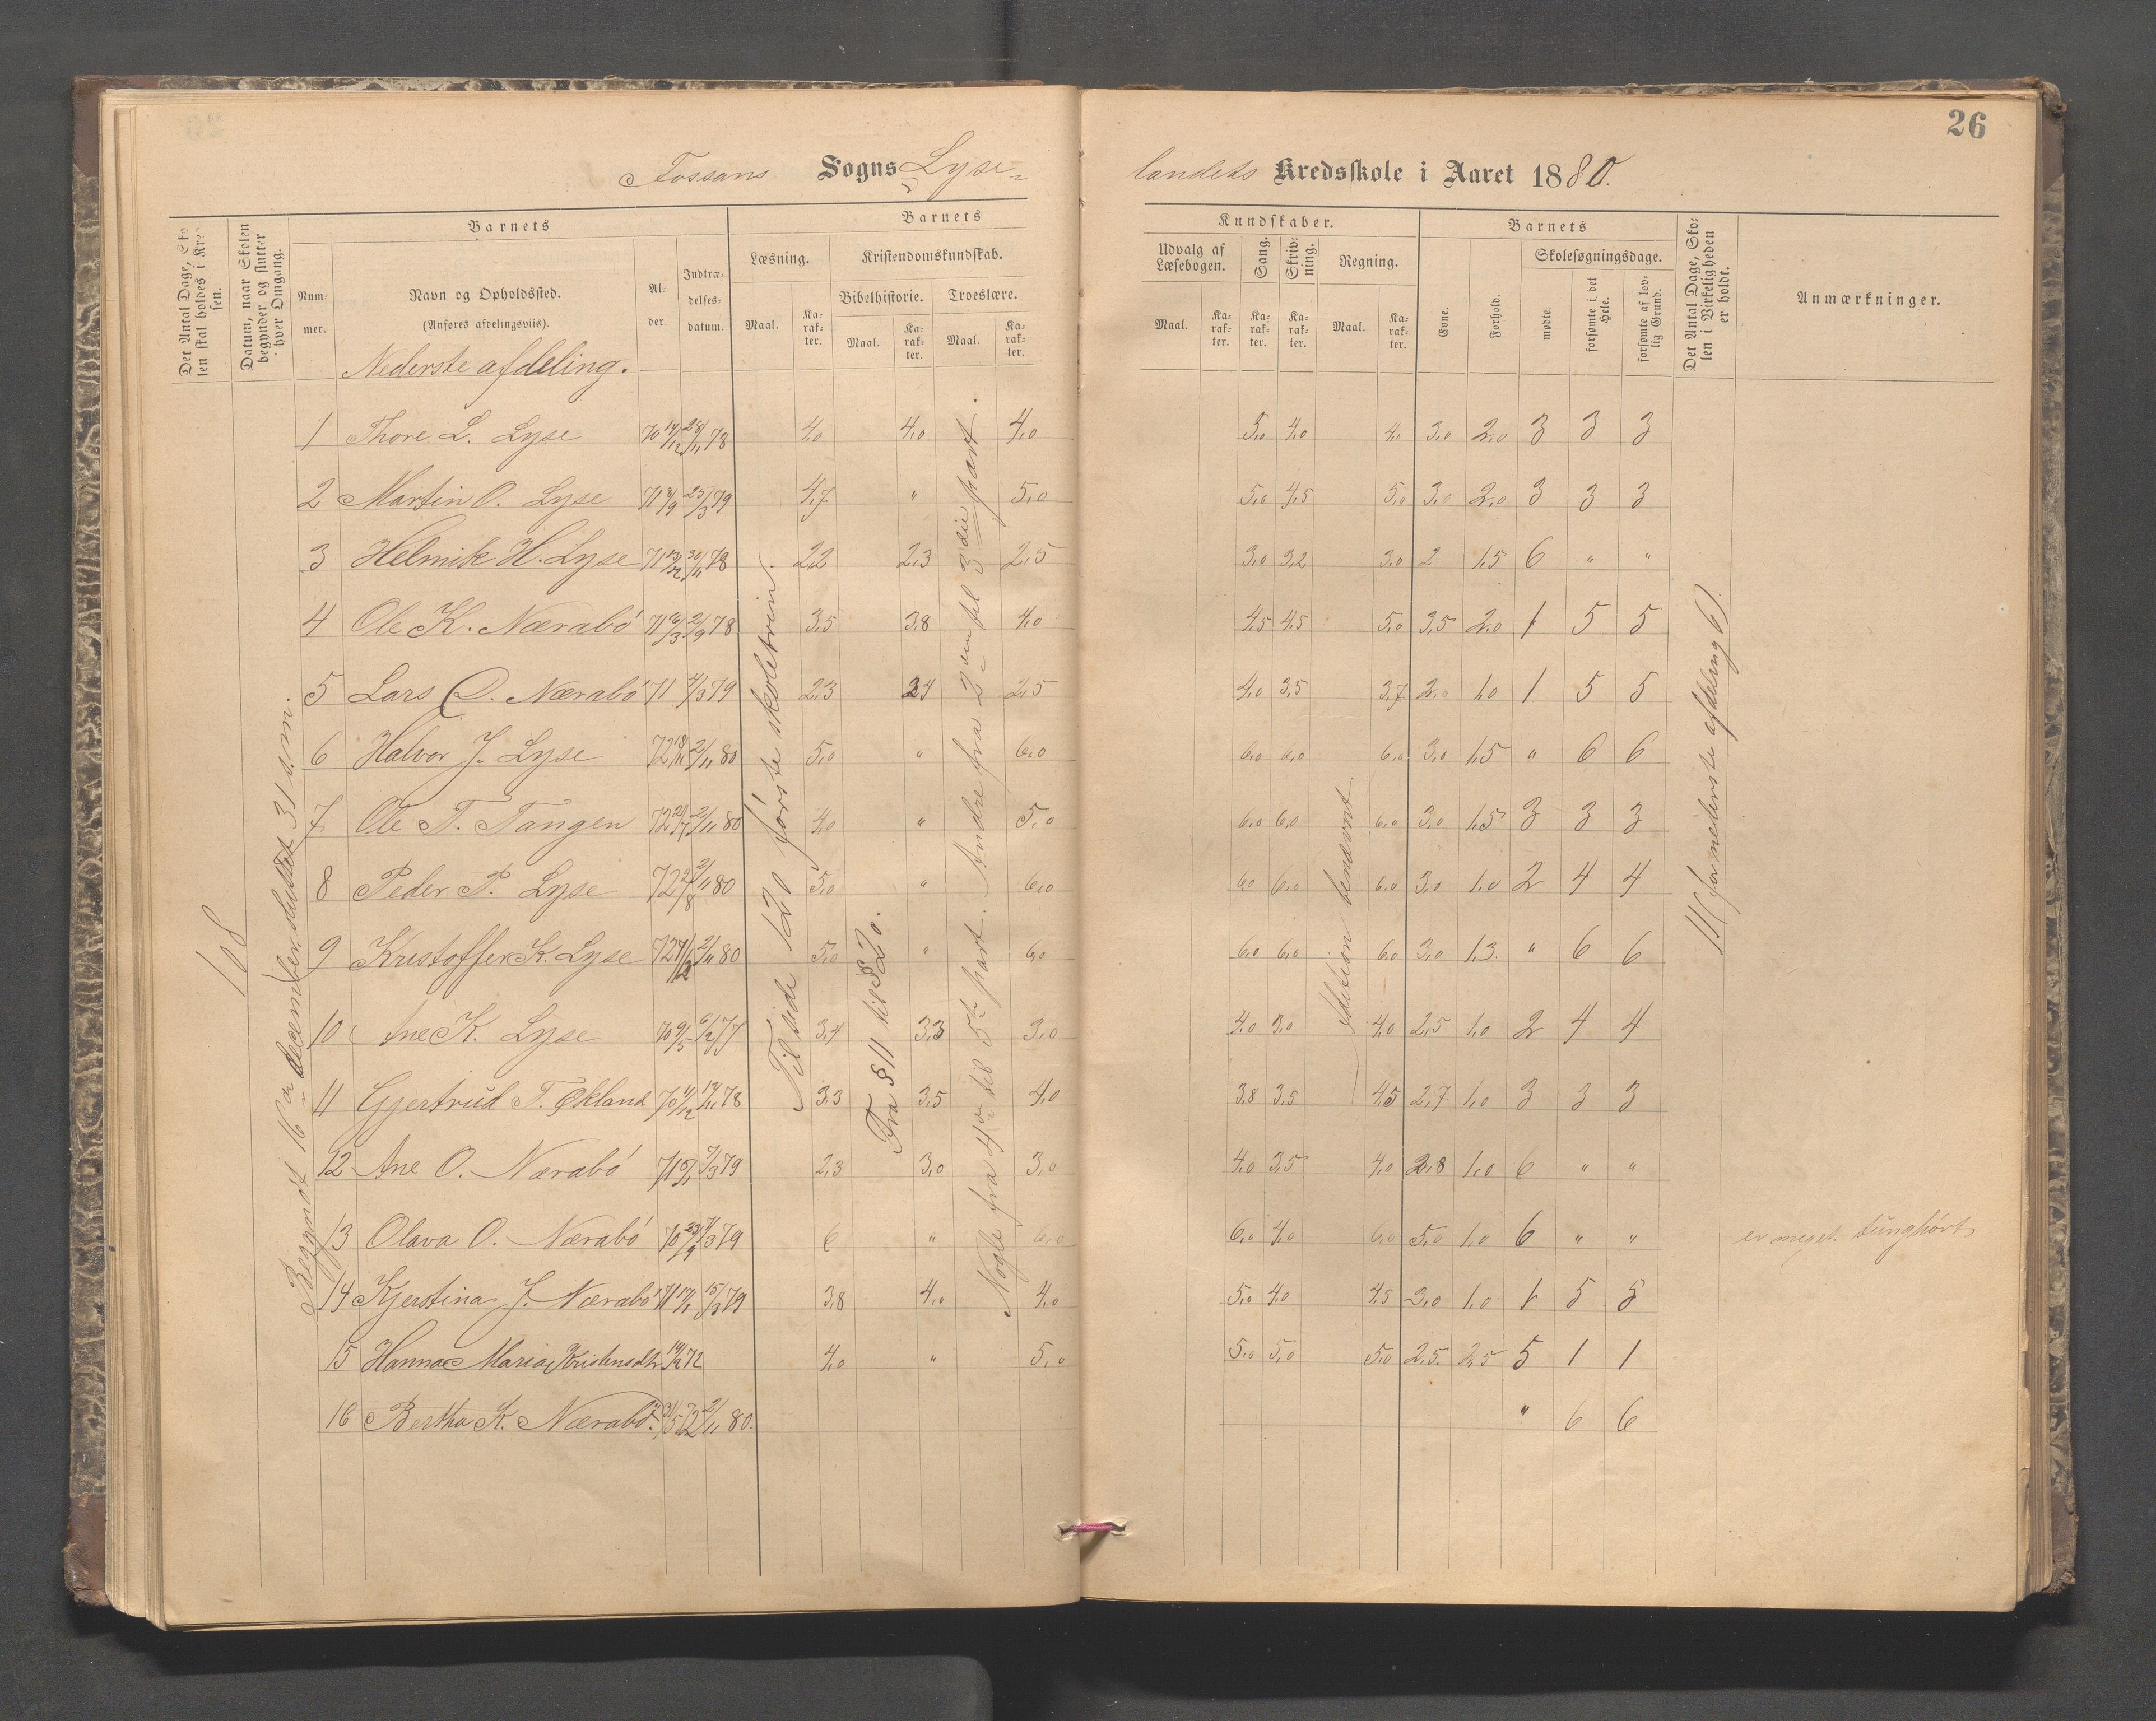 26
Fossans Sogns Lyse-
landets Kredsskole i Aaret 1880.
Det Antal Dage, Skolen skal holdes i Kredsen.
Datum, naar Skolen begynder og slutter hver Omgang.
Barnets
Nummer.
Navn og Opholdssted.
(Anføres afdelingsviis).
Alder.
Indtrædelsesdatum.
Barnets
Læsning.
Maal.
Karakter.
Kristendomskundskab.
Bibelhistorie.
Troeslære.
Maal.
Karakter.
Maal.
Karakter.
Kundskaber.
Udvalg af Læsebogen.
Maal.
Karakter.
Sang.
Karakter.
Skrivning.
Karakter.
Regning.
Maal.
Karakter.
Barnets
Evne.
Forhold.
Skolesøgningsdage.
mødte.
forsømte i det Hele.
forsømte af lovlig Grund.
Det Antal Dage, Skolen i Virkeligheden er holdt.
Anmærkninger.
Nederste afdeling.
108
Begyndt 16de december, sluttet 31 s.m.
Til side 120 første skoletrin.
Fra § 11 til § 20.
Nogle fra 4de til 5te part. Andre fra 2den til 3die part.
Addition benævnt
11 (for nederste afdeling 6).
1 Thore L. Lyse 70 14/12 28/11 78 4,0 4,0 4,0 5,0 4,0 4,0 3,0 2,0 3 3 3
2 Martin O. Lyse 71 8/9 25/3 79 4,7 " 5,0 5,0 4,5 5,0 3,0 2,0 3 3 3
3 Helmik H. Lyse 71 13/12 30/11 78 2,2 2,3 2,5 3,0 3,2 3,0 2 1,5 6 " "
4 Ole K. Nærabø 71 16/3 2/9 78 3,5 3,8 4,0 4,5 4,5 5,0 3,5 2,0 1 5 5
5 Lars O. Nærabø 71 4/3 79 2,3 2,4 2,5 4,0 3,5 3,7 2,0 1,0 1 5 5
6 Halvor J. Lyse 72 18/11 2/11 80 5,0 " 6,0 6,0 6,0 6,0 3,0 1,5 " 6 6
7 Ole T. Tangen 72 21/7 2/11 80 4,0 " 5,0 6,0 6,0 6,0 3,0 1,5 3 3 3
8 Peder P. Lyse 72 2/8 2/11 80 5,0 " 6,0 6,0 6,0 6,0 3,0 1,0 2 4 4
9 Kristoffer K. Lyse 72 2/11 80 5,0 " 6,0 6,0 6,0 6,0 3,0 1,3. " 6 6
10 Ane K. Lyse 70 9/5 6/2 77 3,4 3,3 3,0 4,0 3,0 4,0 2,5 1,0 2 4 4
11 Gjertrud T. Økland 70 4/12 12/11 78 3,3 3,5 4,0 3,8 3,5 4,5 2,7 1,0 3 3 3
12 Ane O. Nærabø 71 5/1 7/3 79 2,3 3,0 3,0 4,0 3,5 4,0 2,8 1,0 6 " "
13 Olava O. Nærabø 70 23/9 4/3 79 6 " 6,0 6,0 4,0 6,0 5,0 1,0 6 " " er meget tunghørt
14 Kjerstina J. Nærabø 71 17/1 15/3 79 3,8 4,0 4,0 5,0 4,0 4,5 3,0 1,0 1 5 5
15 Hanna Maria Kristensdtr 14/2 72 4,0 " 5,0 5,0 5,0 5,0 2,5. 2,5 5 1 1
16 Bertha K. Nærabø. 31/5 72 2/11 80. " 6 6